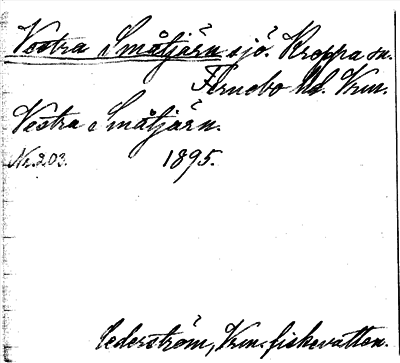 Vestra Småtjärn sjö. Kroppa sn.
Färnebo hd. Vrm.
Vestra Småtjärn.
Nr. 203. 1895.
Cederström, Vrm. fiskevatten.